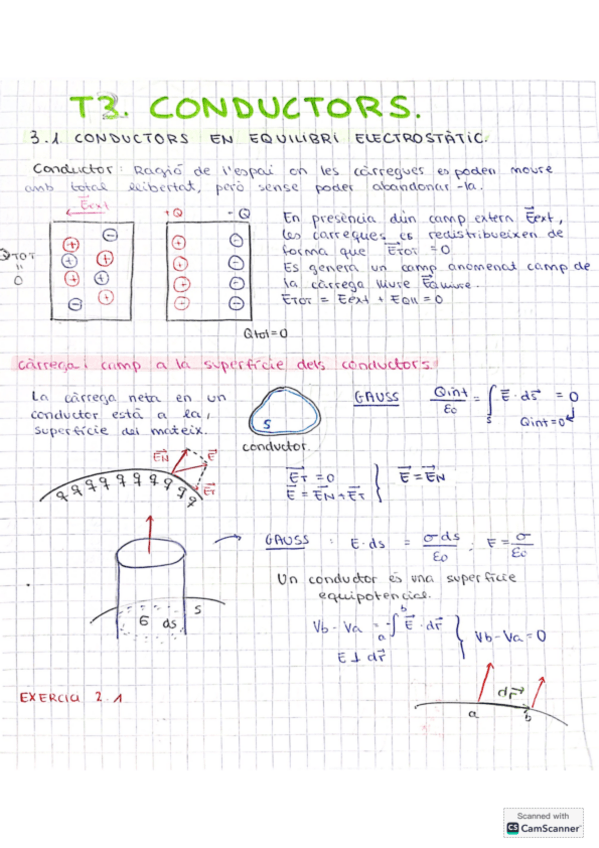 T3. CONDUCTORS.
3.1 CONDUCTORS EN EQUILIBRI ELECTROSTÀTIC.
Conductor: Ragió de l'espai on les càrregues es poden moure
amb total llibertat, però sense poder abandonar-la.
Eext
+Q
-Q
QTOT
"
0
Qtot=0
En presència d'un camp extern Eext,
les càrregues es redistribueixen de
forma que ETOT = 0
Es genera un camp anomenat camp de
la càrrega lliure Eqlliure.
ETOT = Eext + EQll = 0
Càrrega i camp a la superfície dels conductors.
La càrrega neta en un
conductor està a la
superfície del mateix.
S
conductor.
GAUSS Qint/ε0 = ∫s E · ds = 0
Qint=0
EN
E
ET
q q q q q q q q q q
ET = 0
E = EN + ET
E = EN
GAUSS : E·ds = σ ds/ε0 ; E = σ/ε0
Un conductor és una superfície
equipotencial.
S
ds
Vb - Va = -∫a b E · dr
E ⊥ dr
Vb - Va = 0
EXERCICI 2.1
dr
a
b
Scanned with
CS CamScanner